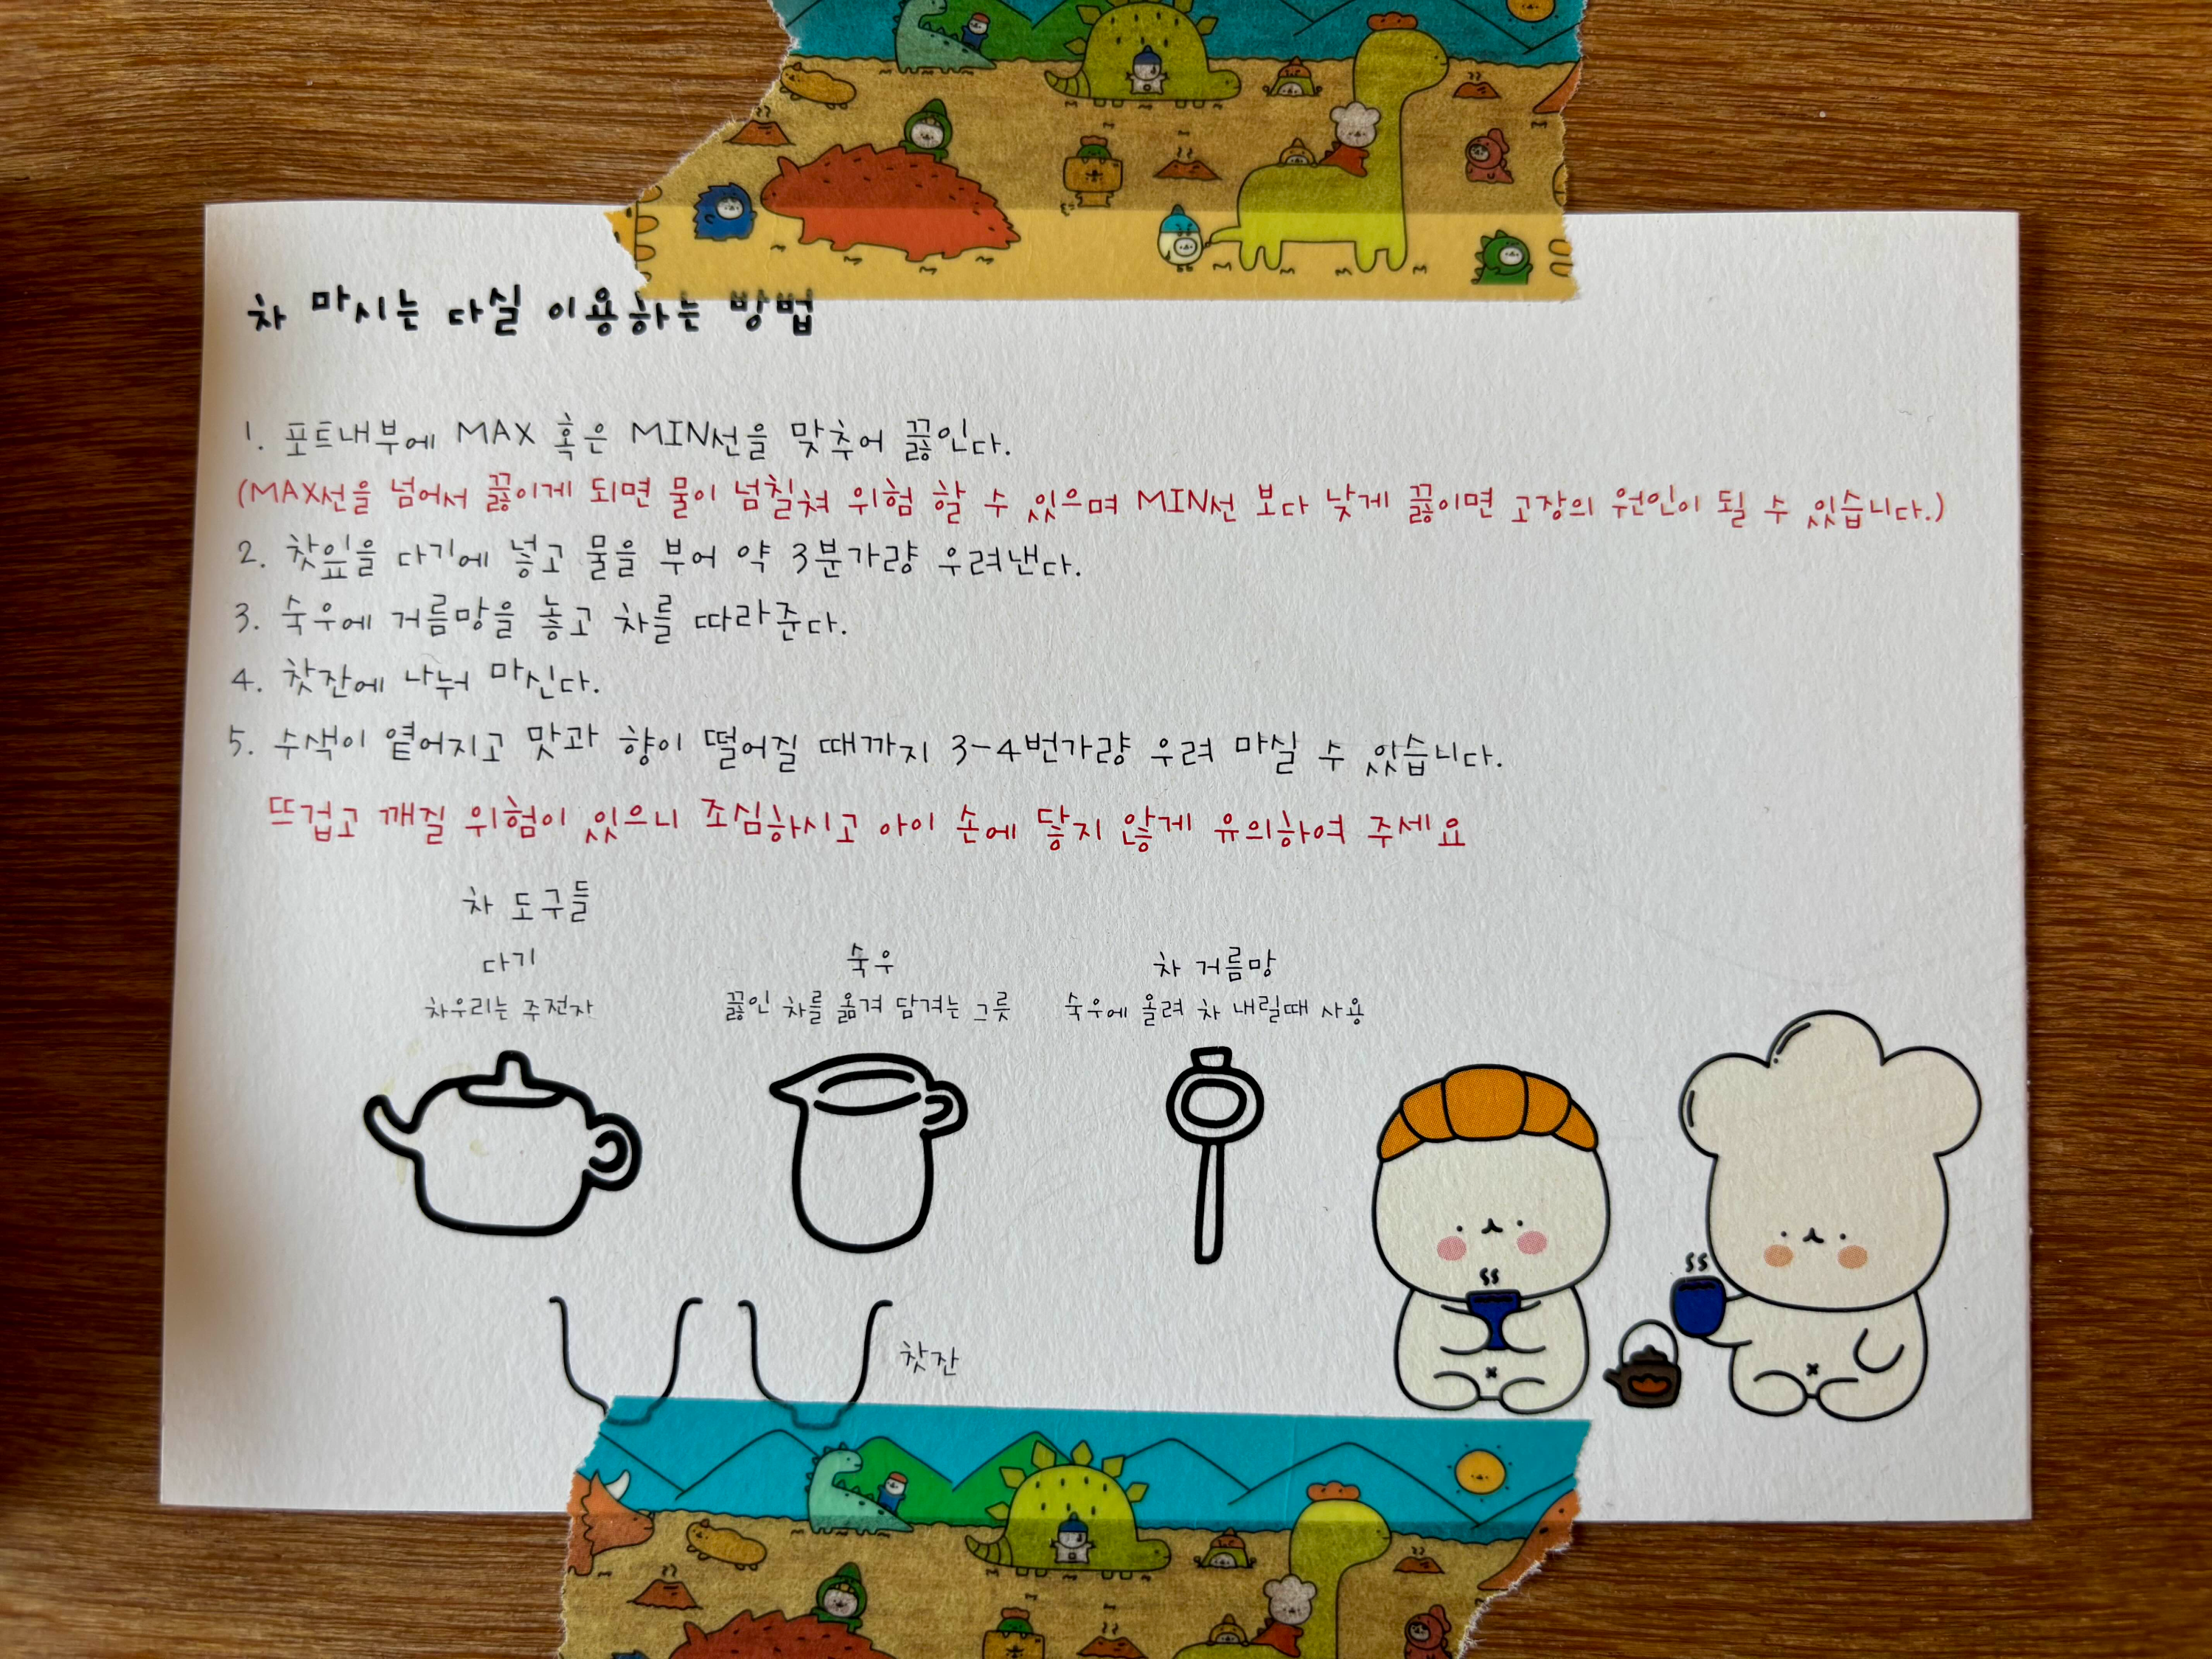 차 마시는 다실 이용하는 방법
1. 포트내부에 MAX 혹은 MIN선을 맞추어 끓인다.
(MAX선을 넘어서 끓이게 되면 물이 넘칠쳐 위험 할 수 있으며 MIN선 보다 낮게 끓이면 고장의 원인이 될 수 있습니다.)
2. 찻잎을 다기에 넣고 물을 부어 약 3분가량 우려낸다.
3. 숙우에 거름망을 놓고 차를 따라준다.
4. 찻잔에 나눠 마신다.
5. 수색이 옅어지고 맛과 향이 떨어질 때까지 3-4번가량 우려 마실 수 있습니다.
뜨겁고 깨질 위험이 있으니 조심하시고 아이 손에 닿지 않게 유의하여 주세요
차 도구들
다기 숙우 차 거름망
차우리는 주전자 끓인 차를 옮겨 담겨는 그릇 숙우에 올려 차 내릴때 사용
찻잔